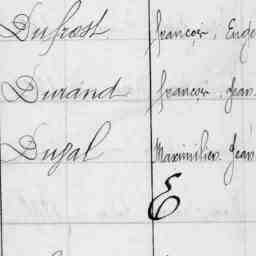 Dufrost françois, Euge
Durand françois, Jean
Dugal Maximilien, Jean
E